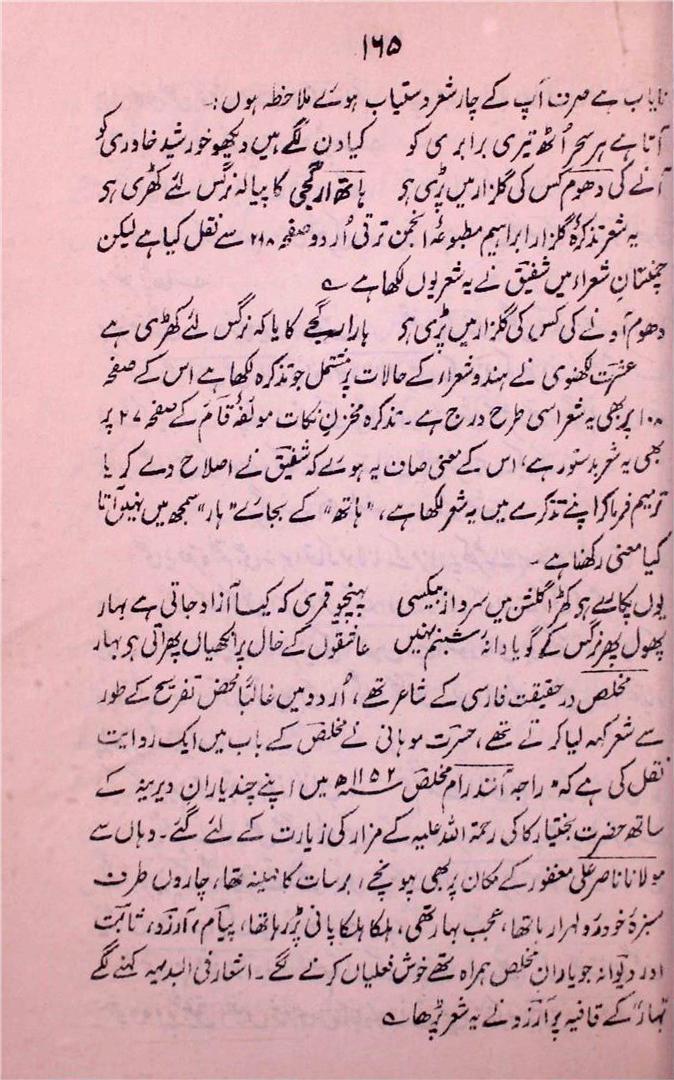 ۱۶۵
نایاب ہے صرف آپ کے چار شعر دستیاب ہوئے ملاحظہ ہوں :۔
آتا ہے ہر سحر اُٹھ تیری برابری کو کیا دن لگے ہیں دیکھو خورشید خاوری کو
آنے کی دھوم کس کی گلزار میں پڑی ہو ہاتھ ارگجی کا پیالہ نرگس لئے کھڑی ہو
یہ شعر تذکرۂ گلزار ابراہیم مطبوعۂ انجمن ترقی اُردو صفحہ ۲۱۸ سے نقل کیا ہے لیکن
چمنستانِ شعراء میں شفیق نے یہ شعر یوں لکھا ہے ؎
دھوم آونے کی کس کی گلزار میں پڑی ہو ہار ارگجے کا یا کہ نرگس لئے کھڑی ہے
عشرت لکھنوی نے ہندو شعراء کے حالات پر مشتمل جو تذکرہ لکھا ہے اس کے صفحہ
۱۰۸ پر بھی یہ شعر اسی طرح درج ہے۔ تذکرہ مخزنِ نکات مولفۂ قائم کے صفحہ ۲۷ پر
بھی یہ شعر بدستور ہے، اس کے معنی صاف یہ ہوئے کہ شفیق نے اصلاح دے کر یا
ترمیم فرما کر اپنے تذکرے میں یہ شعر لکھا ہے، "ہاتھ" کے بجائے "ہار" سمجھ میں نہیں آتا
کیا معنی رکھتا ہے۔
یوں پکارے ہو کھڑا گلشن میں سرو از بیکسی پہنچیو قمری کہ کیسا آزاد جاتی ہے بہار
پھول پھر نرگس کے گویا دانۂ شبنم نہیں عاشقوں کے حال پر انکھیاں پھراتی ہو بہار
مخلص در حقیقت فارسی کے شاعر تھے، اُردو میں غالباً محض تفریح کے طور
سے شعر کہہ لیا کرتے تھے، حسرت موہانی نے مخلص کے باب میں ایک روایت
نقل کی ہے کہ "راجہ آنند رام مخلص ۱۱۵۲ھ میں اپنے چند یارانِ دیرینہ کے
ساتھ حضرت بختیار کاکی رحمۃ اللہ علیہ کے مزار کی زیارت کے لئے گئے۔ وہاں سے
مولانا ناصر علی مغفور کے مکان پر بھی پہونچے، برسات کا مہینہ تھا، چاروں طرف
سبزۂ خودرو لہرا رہا تھا، عجب بہار تھی، ہلکا ہلکا پانی پڑ رہا تھا، پیام، آرزو، ثابت
اور دیوانہ جو یارانِ مخلص ہمراہ تھے خوش فعلیاں کرنے لگے۔ اشعار فی البدیہہ کہنے لگے
"بہار" کے قافیہ پر آرزو نے یہ شعر پڑھا ؎